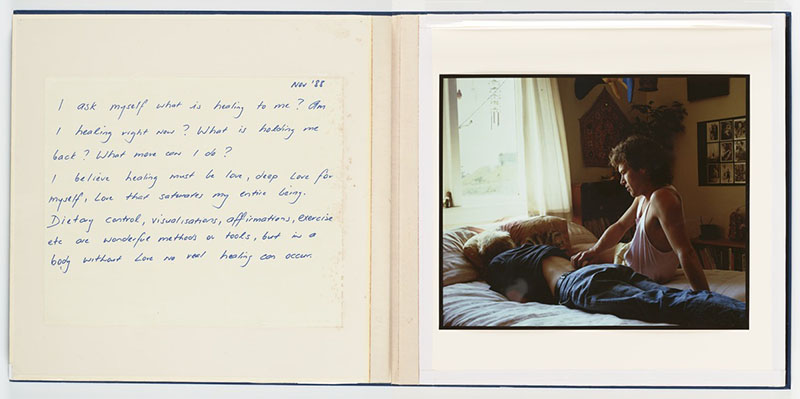 Nov '88
I ask myself what is healing to me? Am
I healing right now? What is holding me
back? What more can I do?
I believe healing must be love, deep love for
myself, love that saturates my entire being.
Dietary control, visualisations, affirmations, exercise
etc are wonderful methods or tools, but in a
body without love no real healing can occur.